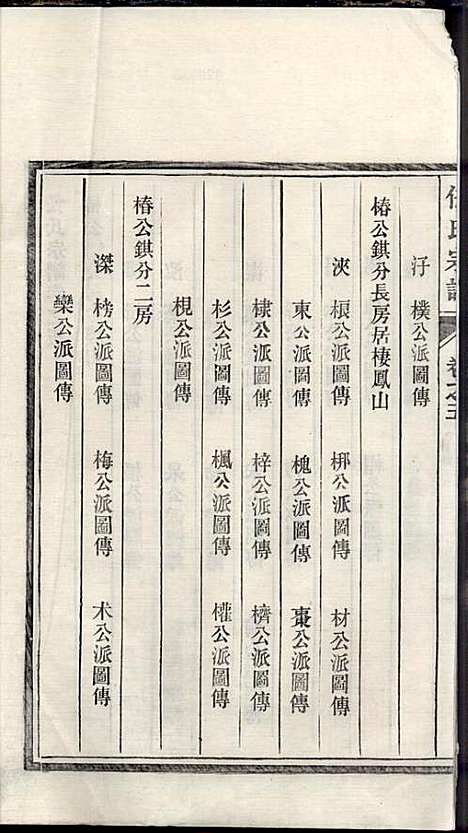 氏宗譜 卷之五
汓 樸公派圖傳
椿公鉷分長房居棲鳳山
浹 桹公派圖傳 梆公派圖傳 材公派圖傳
東公派圖傳 槐公派圖傳 棗公派圖傳
棣公派圖傳 梓公派圖傳 櫅公派圖傳
杉公派圖傳 楓公派圖傳 權公派圖傳
梘公派圖傳
椿公鉷分二房
滐 榜公派圖傳 梅公派圖傳 术公派圖傳
欒公派圖傳